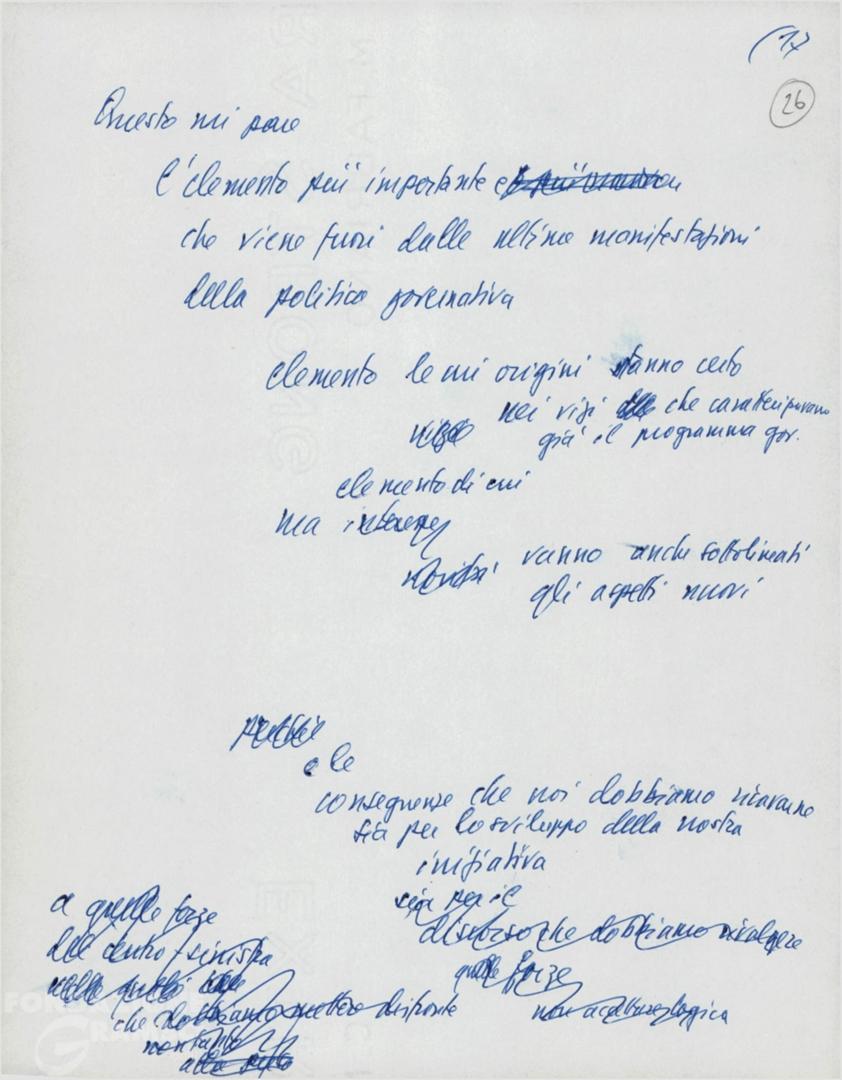 (17
26
Questo mi pare
l'elemento più importante e
che viene fuori dalle ultime manifestazioni
della politica governativa
elemento le cui origini stanno certo
nei vizi che caratterizzavano
già il programma gov.
elemento di cui
ma
vanno anche sottolineati
gli aspetti nuovi
e le
conseguenze che noi dobbiamo ricavarne
sia per lo sviluppo della nostra
iniziativa
sia per il
discorso che dobbiamo rivolgere
a quelle forze
del centro-sinistra
quelle forze
che dobbiamo mettere di fronte
non
alla
FONDAZIONE
GRAMSCI